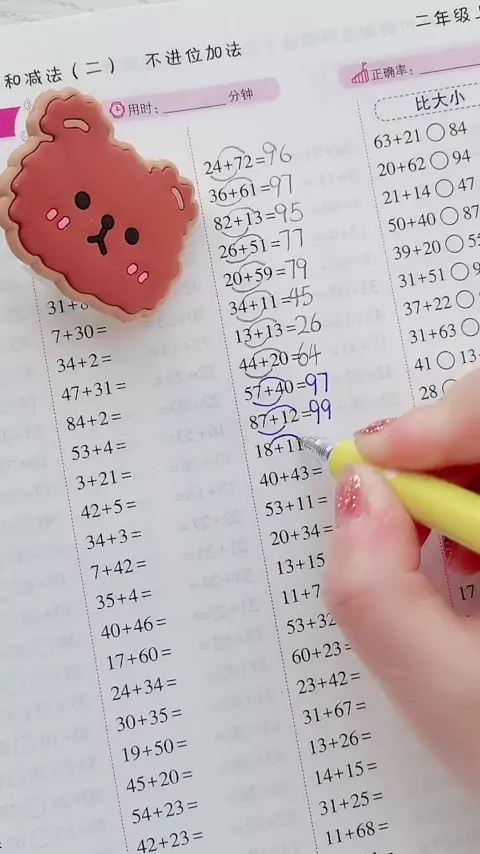 和减法（二） 不进位加法
二年级
用时： 分钟
正确率：
比大小
7+30=
34+2=
47+31=
84+2=
53+4=
3+21=
42+5=
34+3=
7+42=
35+4=
40+46=
17+60=
24+34=
30+35=
19+50=
45+20=
54+23=
42+23=
24+72=96
36+61=97
82+13=95
26+51=77
20+59=79
34+11=45
13+13=26
44+20=64
57+40=97
87+12=99
18+11
40+43=
53+11=
20+34=
13+15
11+7
53+32
60+23=
23+42=
31+67=
13+26=
14+15=
31+25=
11+68=
63+21○84
20+62○94
21+14○47
50+40○87
39+20○
31+51○
37+22○
31+63○
41○13
28○
17